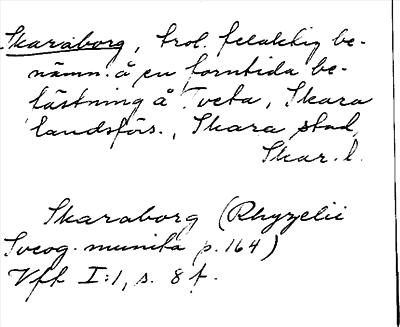 Skaraborg, trol. felaktig be-
nämn. å en forntida be-
fästning å Tveta, Skara
landsförs., Skara stad,
Skar. l.
Skaraborg (Rhyzelii
Sveog. munita p. 164)
Vft I:1, s. 8 f.